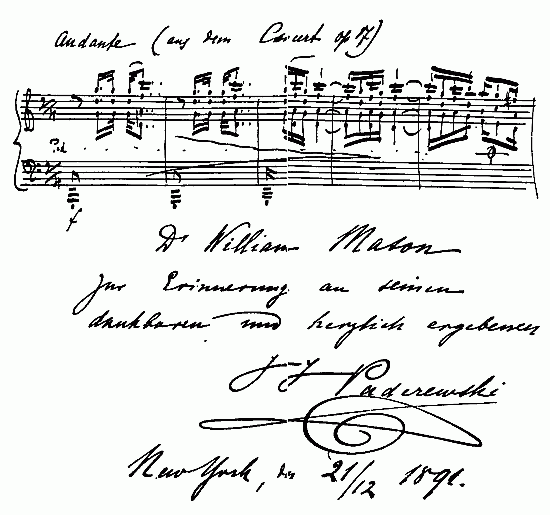 Andante (aus dem Concert op 17)
Ped
f
Dr William Mason
zur Erinnerung an seinen
dankbaren und herzlich ergebenen
I J Paderewski
New York, den 21/12 1891.